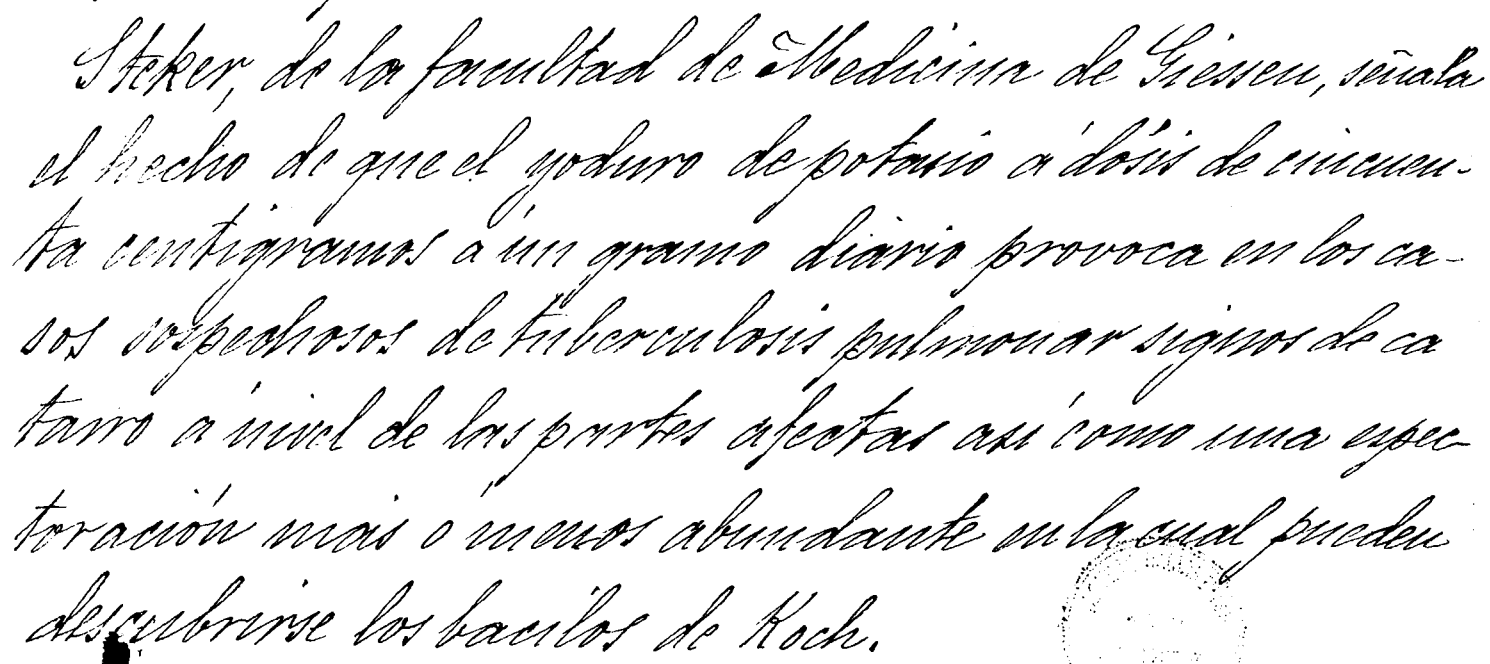 Steker, de la facultad de Medicina de Giessen, señala
el hecho de que el yoduro de potasio á dósis de cincuen-
ta centigramos á un gramo diário provoca en los ca-
sos sospechosos de tuberculosis pulmonar signos de ca
tarro á nivel de las partes afectas asi como una espec-
toración más ó menos abundante en la cual pueden
descubrirse los bacilos de Koch.